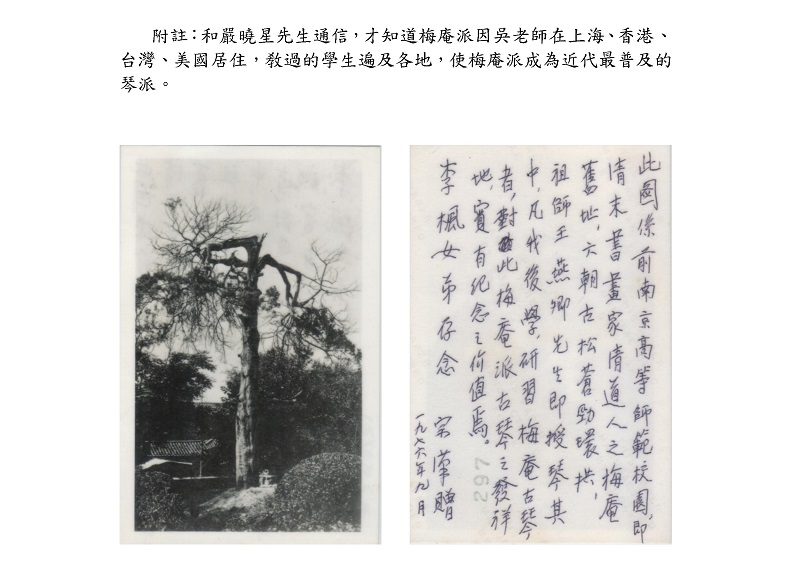 附註：和嚴曉星先生通信，才知道梅庵派因吳老師在上海、香港、
台灣、美國居住，教過的學生遍及各地，使梅庵派成為近代最普及的
琴派。
此圖係前南京高等師範校園，即
清末書畫家清道人之梅庵
舊址，六朝古松蒼勁環拱，
祖師王燕卿先生即授琴其
中，凡我後學，研習梅庵古琴
者，對此梅庵派古琴之發祥
地，實有紀念之價值焉。
李楓女弟存念
宗漢贈
一九七六年九月
297